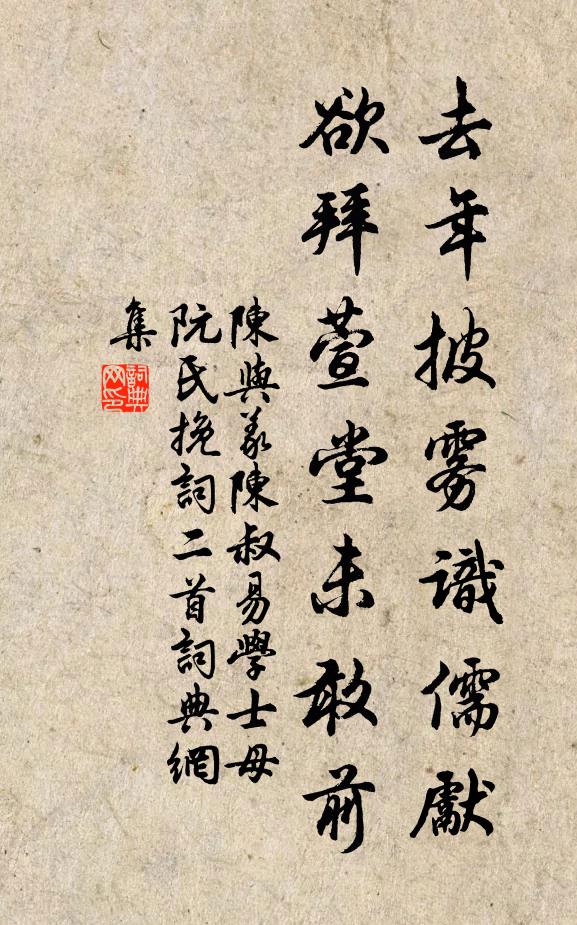 去年披雾識儒獻
欲拜萱堂未敢前
陳與義陳叔易學士母
阮氏挽詞二首詞典網
集
詞典
网印